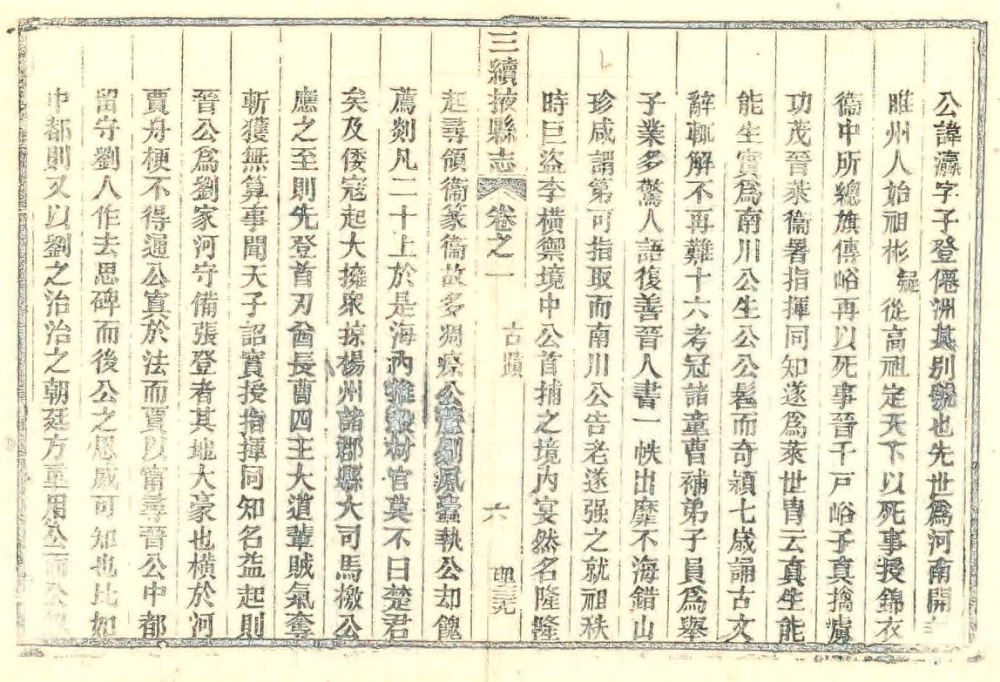 公諱瀛字子登僊洲其別號也先世爲河南開
睢州人始祖彬疑從高祖定天下以死事授錦衣
衞中所總旗傳峪再以死事晉千戶峪子真擒虜
功茂晉萊衞署指揮同知遂爲萊世胄云真生能
能生實爲南川公生公公髫而奇穎七歲誦古文
辭輒解不再難十六考冠諸童曹補弟子員爲舉
子業多驚人語復善晉人書一帙出靡不海錯山
珍咸謂第可指取而南川公告老遂强之就祖秩
時巨盜李橫禦境中公首捕之境內宴然名隆隆
三續掖縣志 卷之一 古蹟 六
起尋領衞篆衞故多凋瘵公 執公却餽
薦剡凡二十上於是海內推轂材官莫不曰楚君
矣及倭寇起大擁衆掠楊州諸郡縣大司馬檄公
應之至則先登首刃酋長曹四王大道輩賊氣奪
斬獲無算事聞天子詔實授指揮同知名益起則
晉公爲劉家河守備張登者其地大豪也橫於河
賈舟梗不得通公真於法而賈以甯尋晉公中都
留守劉人作去思碑而後公之恩威可知也比如
中都則又以劉之治治之朝廷方重用公而公